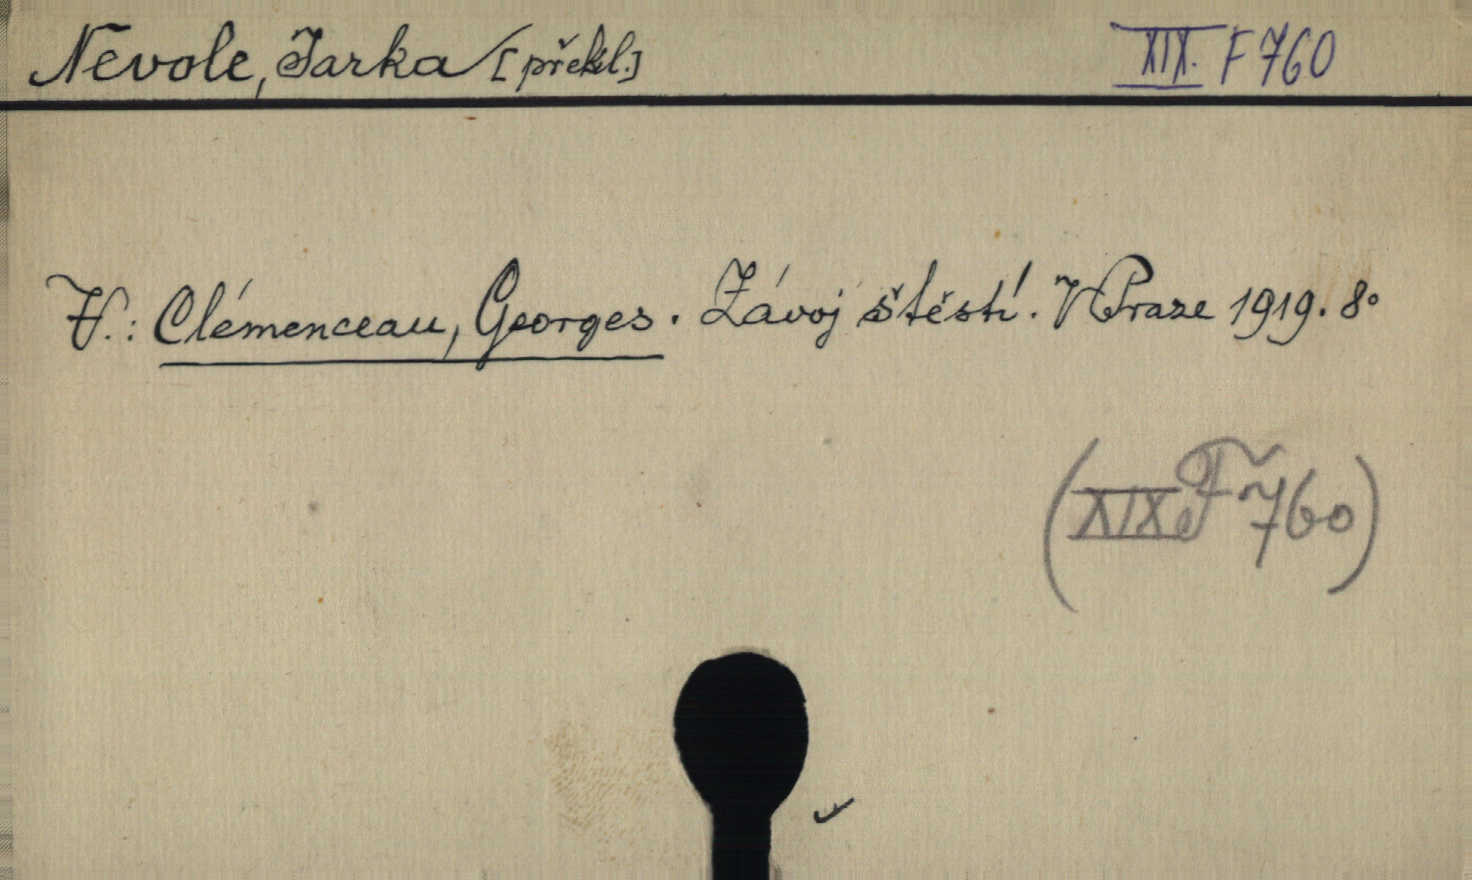 Nevole, Jarka [překl.] XIX. F 760
V.: Clémenceau, Georges. Závoj štěstí. V Praze 1919. 8°
(XIX F 760)